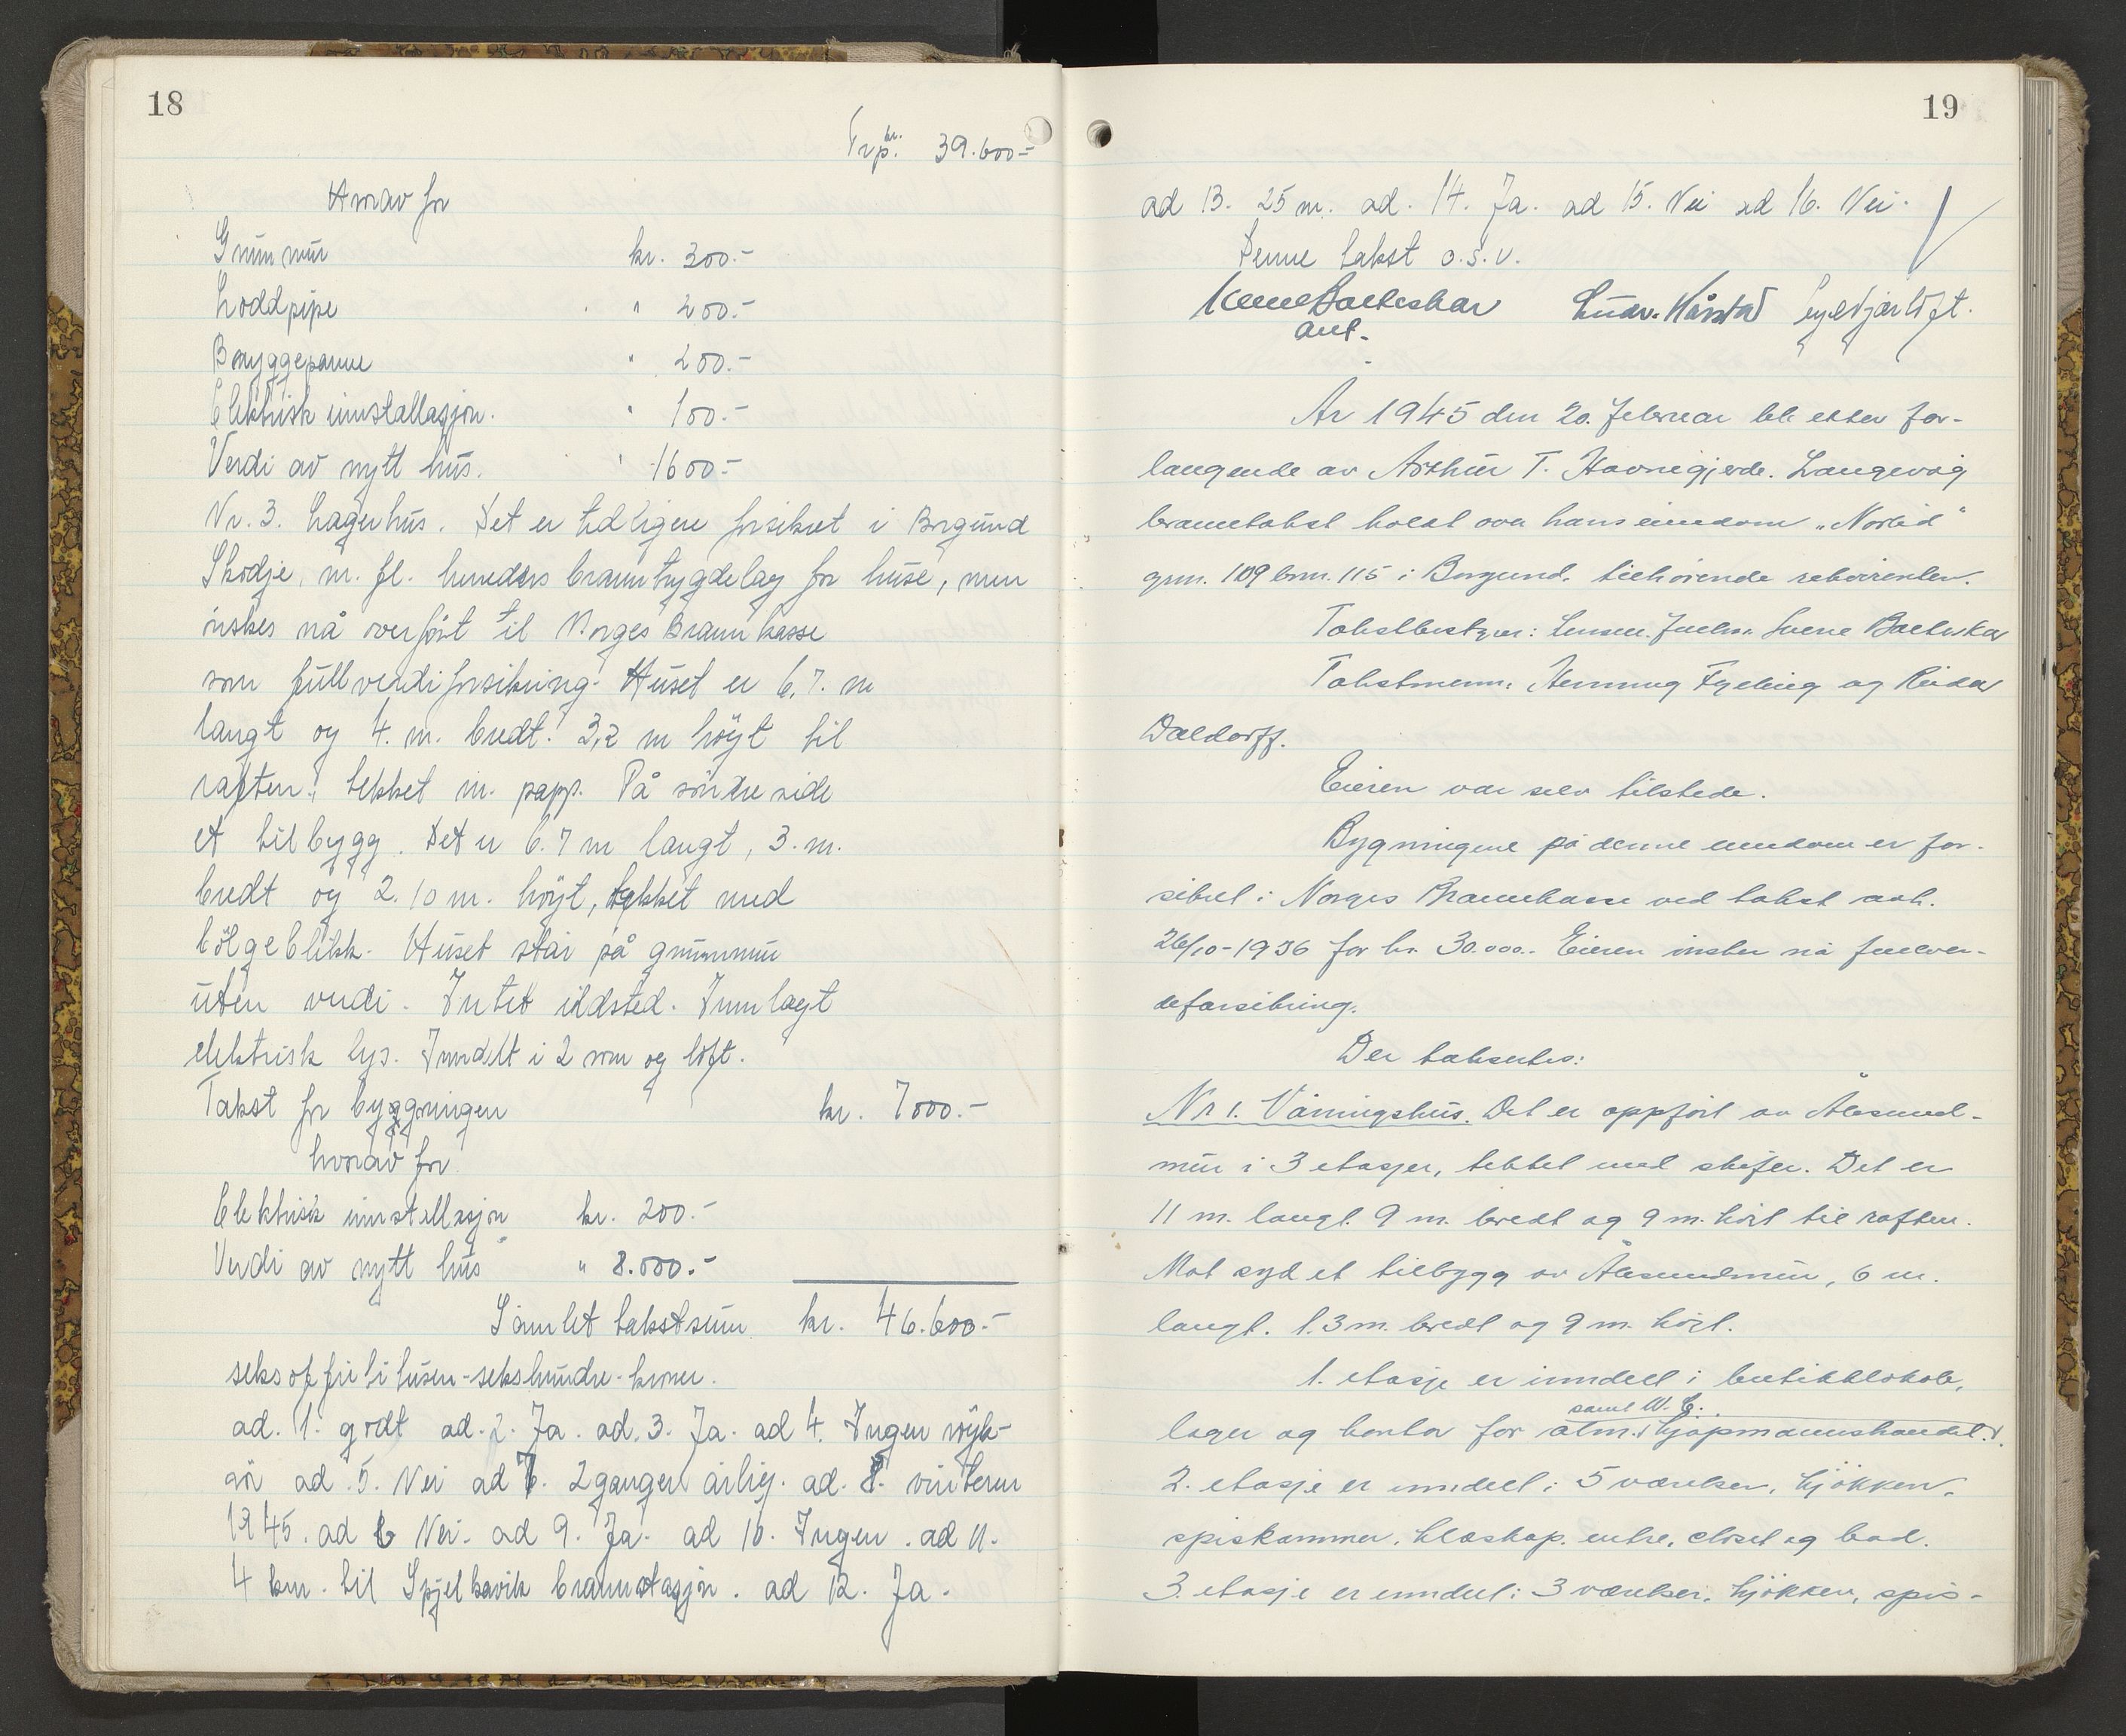 18
Trp. kr. 39.600.-
Hvorav for
Grunnmur kr. 300.-
Loddpipe " 200.-
Bryggepanne " 200.-
Elektrisk innstallasjon. " 100.-
Verdi av nytt hus. " 1600.-
Nr. 3. Lagerhus. Det er tidligere forsikret i Borgund
Skodje, m. fl. herreders branntrygdelag for huse, men
önskes nå overfört til Norges Brannkasse
som fullverdiforsikring. Huset er 6,7. m
langt og 4. m. bredt. 3,2 m höyt til
raften, tekket m. papp. På söndre side
et tilbygg. Det er 6.7 m langt, 3. m.
bredt og 2.10 m. höyt, tekket med
bölgeblikk. Huset står på grunnmur
uten verdi. Intet ildsted. Innlagt
elektrisk lys. Inndelt i 2 rom og loft.
Takst for byggningen kr. 7000.-
hvorav for
Elektrisk innstallasjon kr. 200.-
Verdi av nytt hus " 8.000.-
Samlet takstsum kr. 46.600.-
seksogfirti tusen-sekshundre-kroner.
ad. 1. godt ad. 2. Ja. ad. 3. Ja. ad 4. Ingen röyk-
ad 5. Nei ad 7. 2 ganger årlig. ad. 8. vinteren
1945. ad 6 Nei. ad 9. Ja. ad 10. Ingen. ad 11.
4 km. til Spjelkavik brannstasjon. ad 12. Ja.
19
ad 13. 25 m. ad. 14. Ja. ad 15. Nei ad 16. Nei.
Denne takst o.s.v.
aut.
År 1945 den 20. februar ble etter for-
langende av Arthur T. Havnegjerde. Langevåg
branntakst holdt over hans eiendom „Norlid"
gnr. 109 bnr. 115 i Borgund. tilhörende rekvirenten.
Takstbestyrer: Lensm. fullm. Sverre Balteskar
Takstmenn: Henning Fylling og Reidar
Waldorff.
Eieren var selv tilstede.
Bygningene på denne eiendom er for-
sikret i Norges Brannkasse ved takst avh.
26/10-1936 for kr. 30.000.- Eieren önsker nå fullver-
deforsikring.
Der taksertes:
Nr 1. Våningshus. Det er oppfört av Ålesund-
mur i 3 etasjer, tekket med skifer. Det er
11 m. langt. 9 m. bredt og 9 m. höit til raften.
Mot syd et tilbygg av Ålesundmur, 6 m.
langt. 1.3 m. bredt og 9 m. höit.
1. etasje er inndelt i butikklokale,
samt W. C.
lager og kontor for alm. kjøpmannshandel.
2. etasje er inndelt i 5 værelser, kjökken,
spiskammer, kleskap, entre, closet og bad.
3. etasje er inndelt i 3 værelser, kjökken, spis-